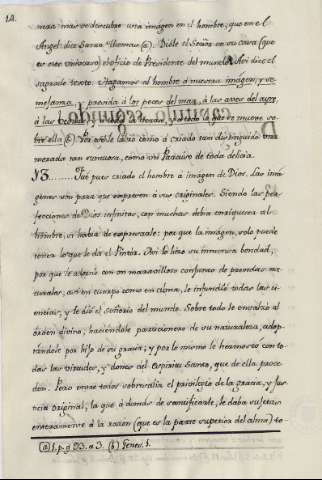 12.
mas mas se descubre una imagen en el hombre, que en el
Angel: dice Santo Thomas (a). Diole el Señor en su casa (que
es este universo) el oficio de Presidente del mundo. Asi dice el
sagrado texto: Hagamos al hombre à nuestra imagen, y se-
mejanza: presida à los peces del mar, à las aves del ayre,
à las bestias, y à toda la tierra, y à todo lo que se mueve so-
bre ella (b). Por
mezada tan suntuosa, como un Paraiso de toda delicia.
13. Fué pues criado el hombre à imagen de Dios. Las ima-
genes son para que expresen à sus originales. Siendo las per-
fecciones de Dios infinitas, con muchas debia enriquecer al
hombre, si habia de expresarle: por que la imagen, solo puede
tener lo que le da el Pintor. Asi lo hizo su inmensa bondad,
por que le adornó con un maravilloso conjunto de prendas na-
turales, asi en cuerpo como en alma, le infundió todas las ci-
encias, y le dió el señorio del mundo. Sobre todo le ensalzó al
orden divino, haciendole participante de su naturaleza, adop-
tandole por hijo de su gracia; y por lo mismo le hermoseó con to-
das las virtudes, y dones del Espiritu Santo, que de ella proce-
den. Pero entre todos sobresalia el privilegio de la gracia, y jus-
ticia original, la que à demás de santificarle, le daba sujetas
enteramente à la razon (que es la parte superior del alma) to-
(a) 1. p. q. 93. a. 3. (b) Genes. 1.